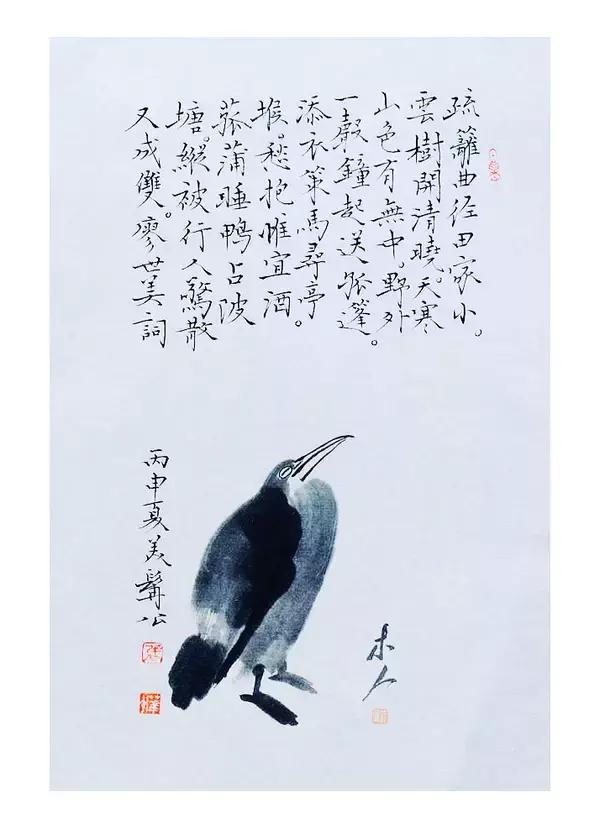 疏籬曲径田家小。
雲樹開清曉。天寒
山色有無中。野外
一聲鐘起送孤篷。
添衣策馬尋亭
堠。愁抱惟宜酒。
菰蒲睡鴨占陂
塘。縱被行人驚散
又成雙。廖世美詞
丙申夏美髯公
木人